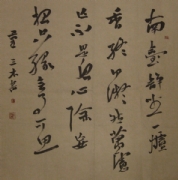 南臺静坐一爐
香終日凝然萬慮
亡不是息心除妄
想只緣無事可思
量 三木